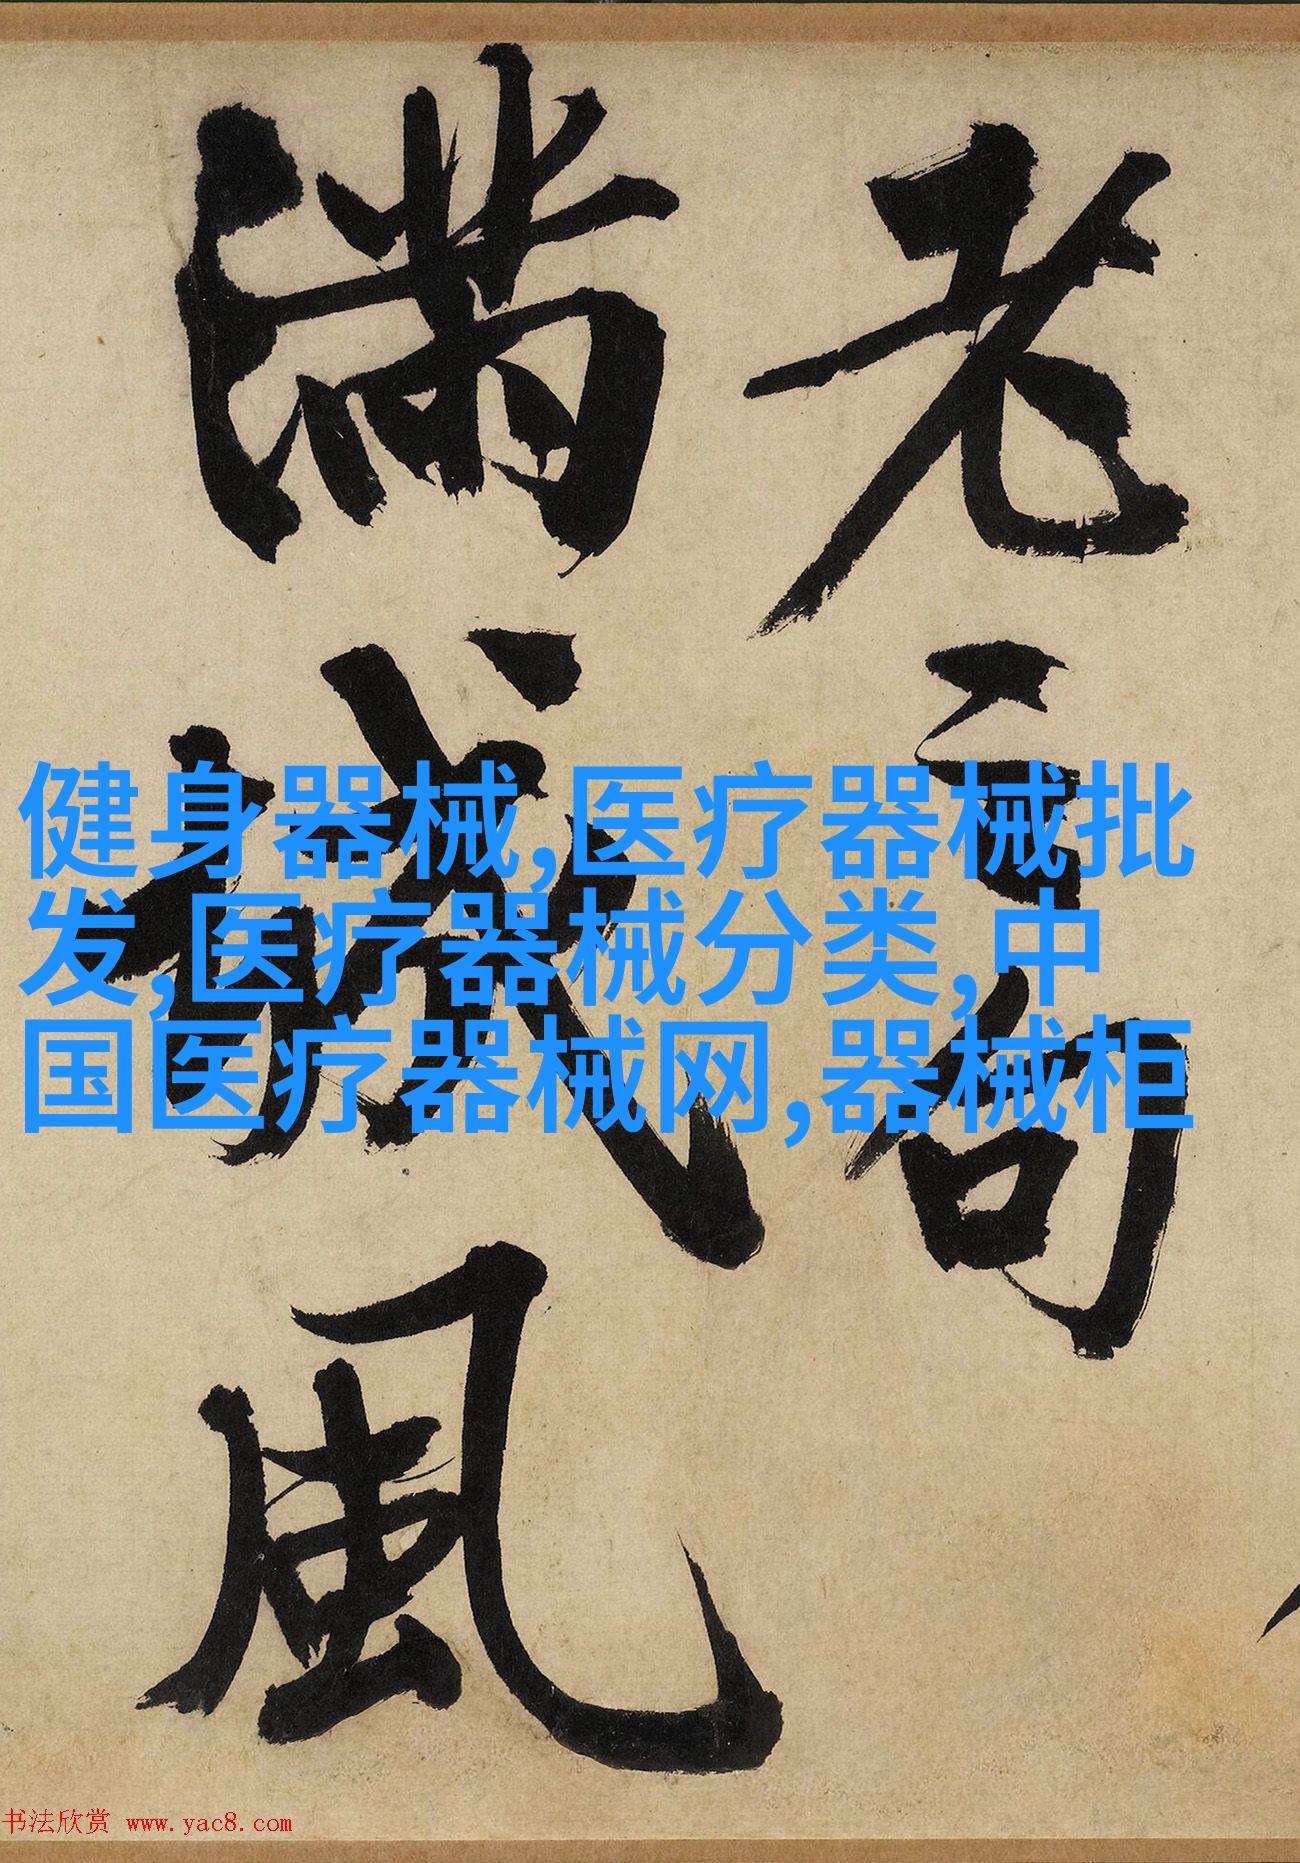 老句
滿城風
健身器械,医疗器械批
发,医疗器械分类,中
国医疗器械网,器械柜
书法欣赏 www.yac8.com